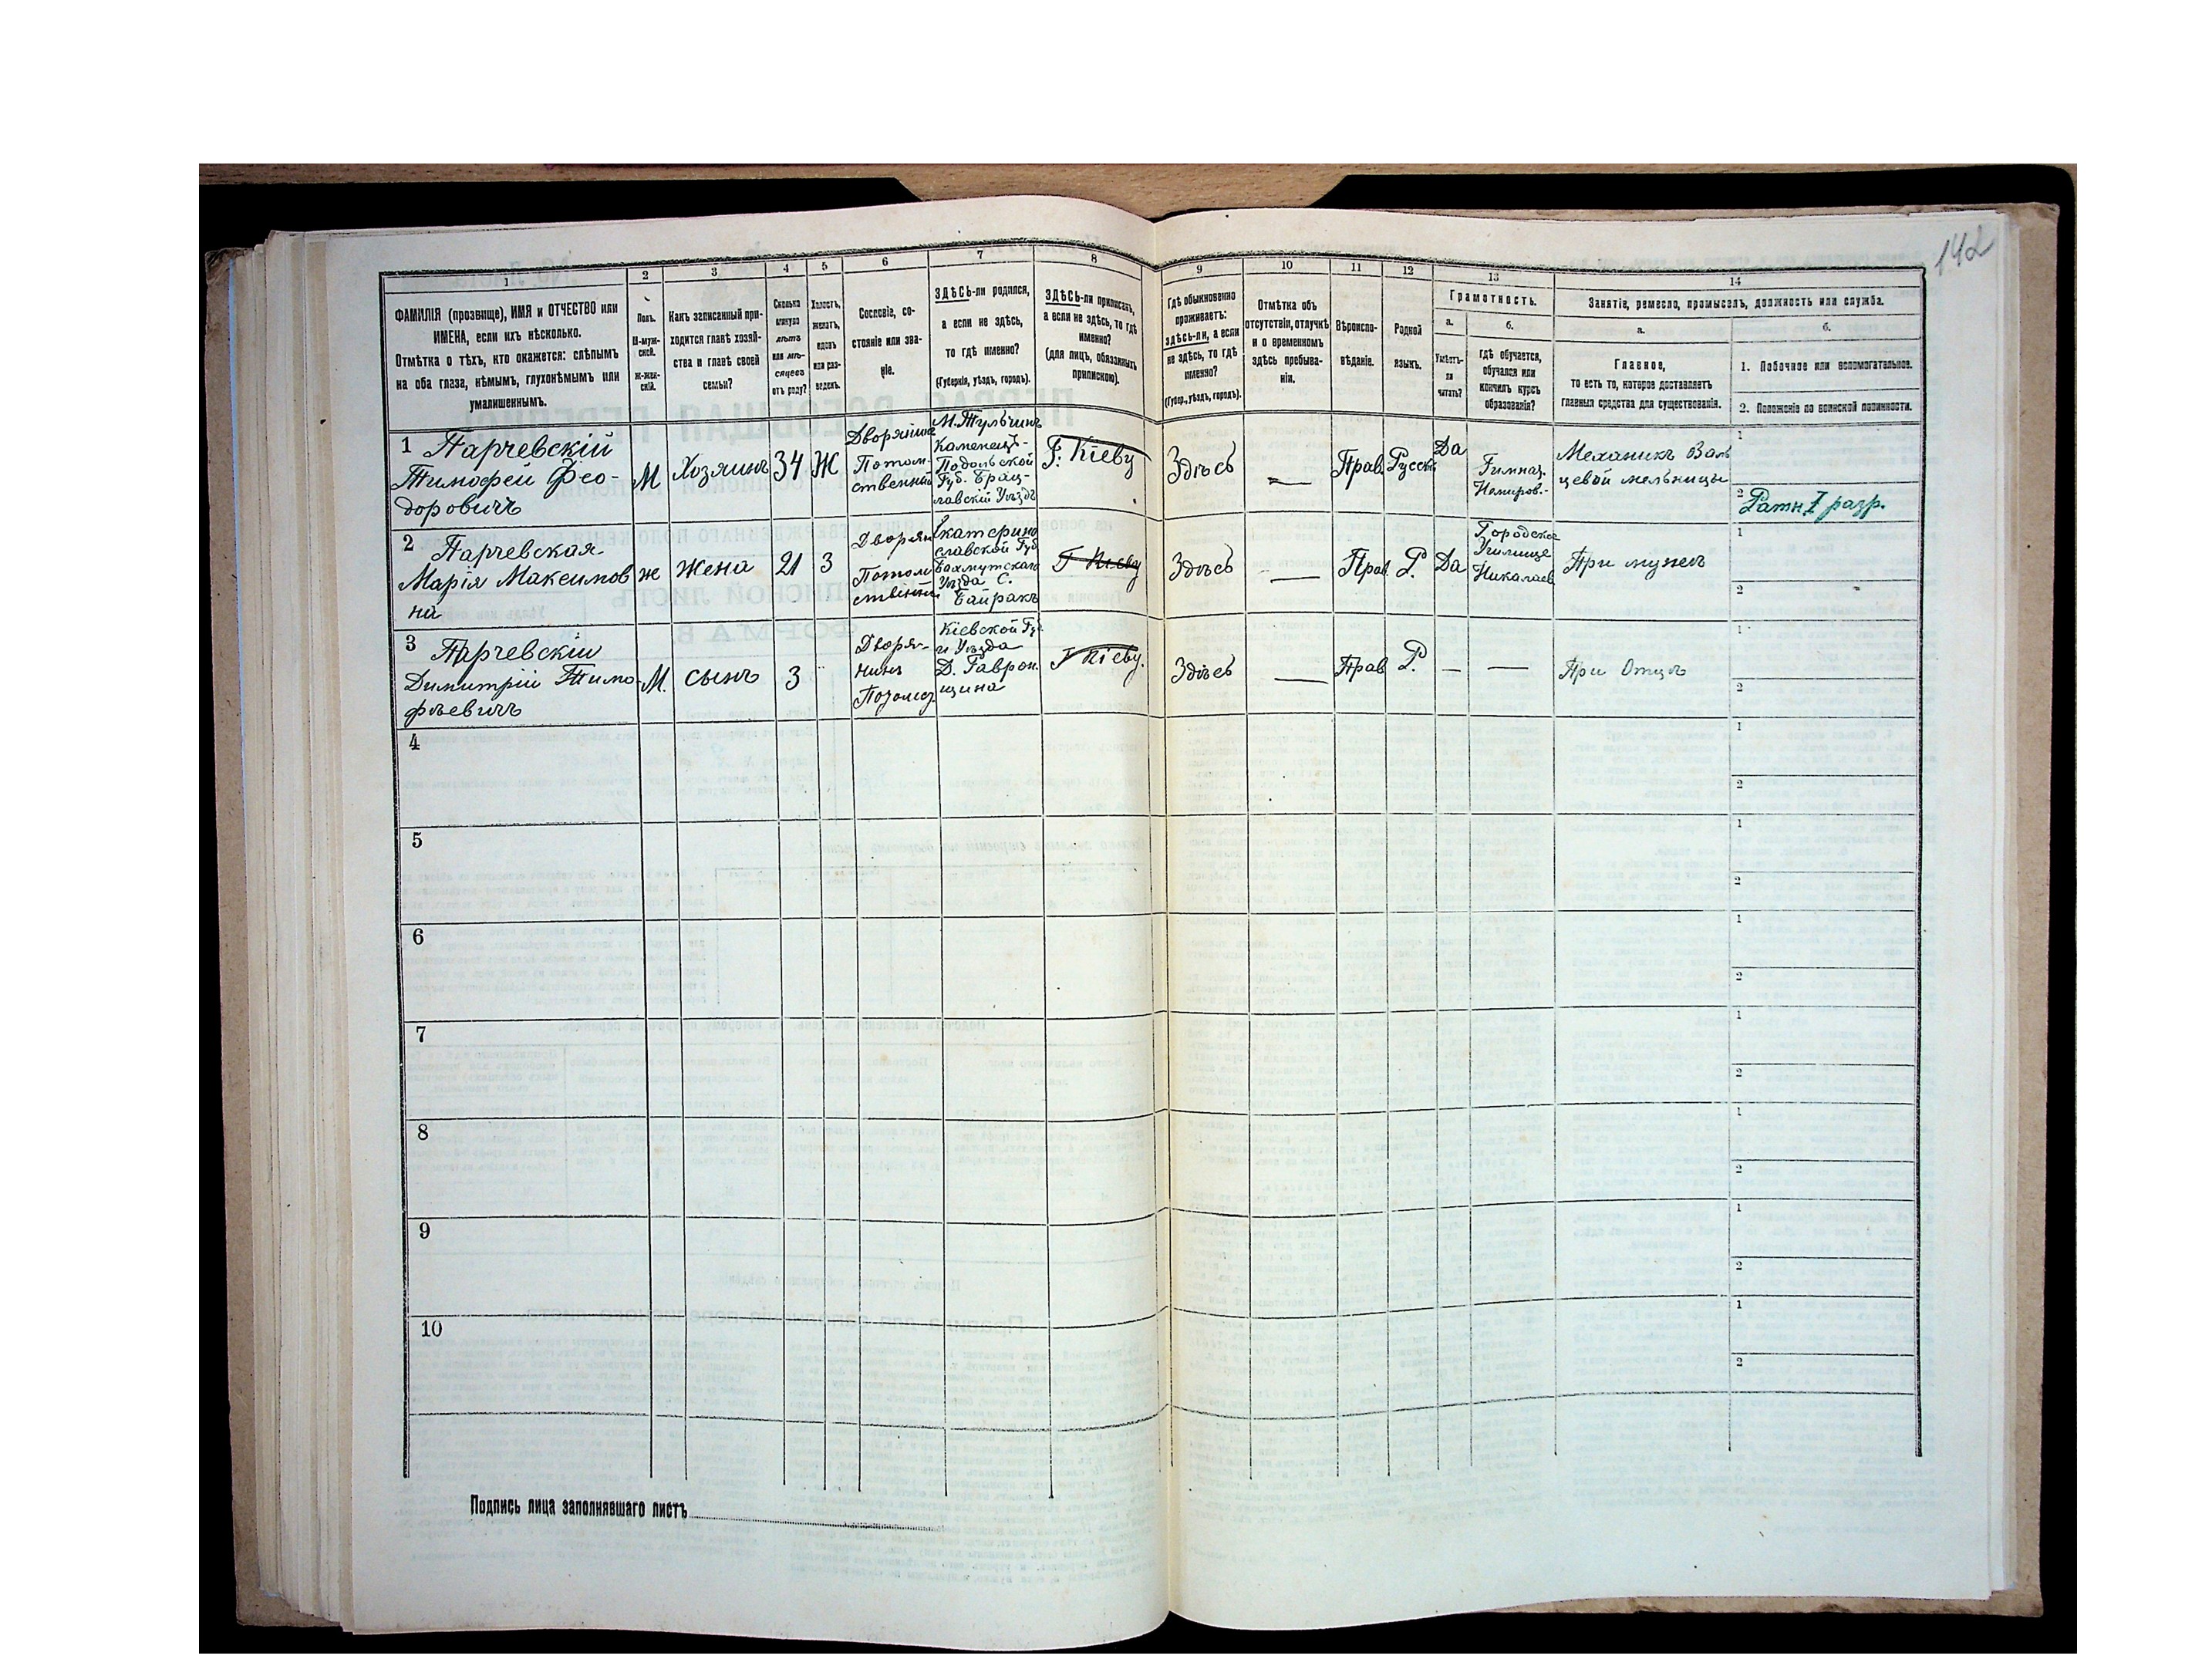 142
1 2 3 4 5 6 7 8 9 10 11 12 13 14
ФАМИЛІЯ (прозвище), ИМЯ и ОТЧЕСТВО или
ИМЕНА, если ихъ нѣсколько.
Отмѣтка о тѣхъ, кто окажется: слѣпымъ
на оба глаза, нѣмымъ, глухонѣмымъ или
умалишеннымъ.
Полъ.
М-муж-
ской.
Ж-жен-
скій.
Какъ записанный при-
ходится главѣ хозяй-
ства и главѣ своей
семьи?
Сколько
минуло
лѣтъ
или мѣ-
сяцевъ
отъ роду?
Холостъ,
женатъ,
вдовъ
или раз-
веденъ.
Сословіе, со-
стояніе или зва-
ніе.
ЗДѢСЬ-ли родился,
а если не здѣсь,
то гдѣ именно?
(Губернія, уѣздъ, городъ).
ЗДѢСЬ-ли приписанъ,
а если не здѣсь, то гдѣ
именно?
(для лицъ, обязанныхъ
припискою).
Гдѣ обыкновенно
проживаетъ:
здѣсь-ли, а если
не здѣсь, то гдѣ
именно?
(Губер., уѣздъ, городъ).
Отмѣтка объ
отсутствіи, отлучкѣ
и о временномъ
здѣсь пребыва-
ніи.
Вѣроиспо-
вѣданіе.
Родной
языкъ.
Грамотность.
а.
Умѣетъ-
ли
читать?
б.
гдѣ обучается,
обучался или
кончилъ курсъ
образованія?
Занятіе, ремесло, промыселъ, должность или служба.
а.
Главное,
то есть то, которое доставляетъ
главныя средства для существованія.
б.
1. Побочное или вспомогательное.
2. Положеніе по воинской повинности.
1 Парчевскій
Тимофей Фео-
доровичъ
М
Хозяинъ
34
Ж
Дворянинъ
Потом-
ственный
М. Тульчинъ
Каменецъ-
Подольской
Губ. Брац-
лавскій Уѣздъ
Г. Кіеву
Здѣсь
—
Прав.
Русск.
Да
Гимназ.
Немиров.-
Механикъ Валь
цевой мельницы
1
2 Ратн. I разр.
2 Парчевская-
Марія Максимов
на
ж
жена
21
З
Дворян
Потом
ственный
Екатерино
славской Губ
Бахмутскаго
Уѣзда С.
Байракъ
Г Кіеву
Здѣсь
—
Прав.
Р.
Да
Городское
Училище
Николаев
При мужѣ
1
2
3 Парчевскій
Димитрій Тимо
фѣевичъ
М.
сынъ
3
Дворя-
нинъ
Потомст.
Кіевской Губ
и Уѣзда
Д. Гаврон
щина
Г Кіеву.
Здѣсь
—
Прав
Р.
—
—
При Отцѣ
1
2
4
1
2
5
1
2
6
1
2
7
1
2
8
1
2
9
1
2
10
1
2
Подпись лица заполнявшаго листъ